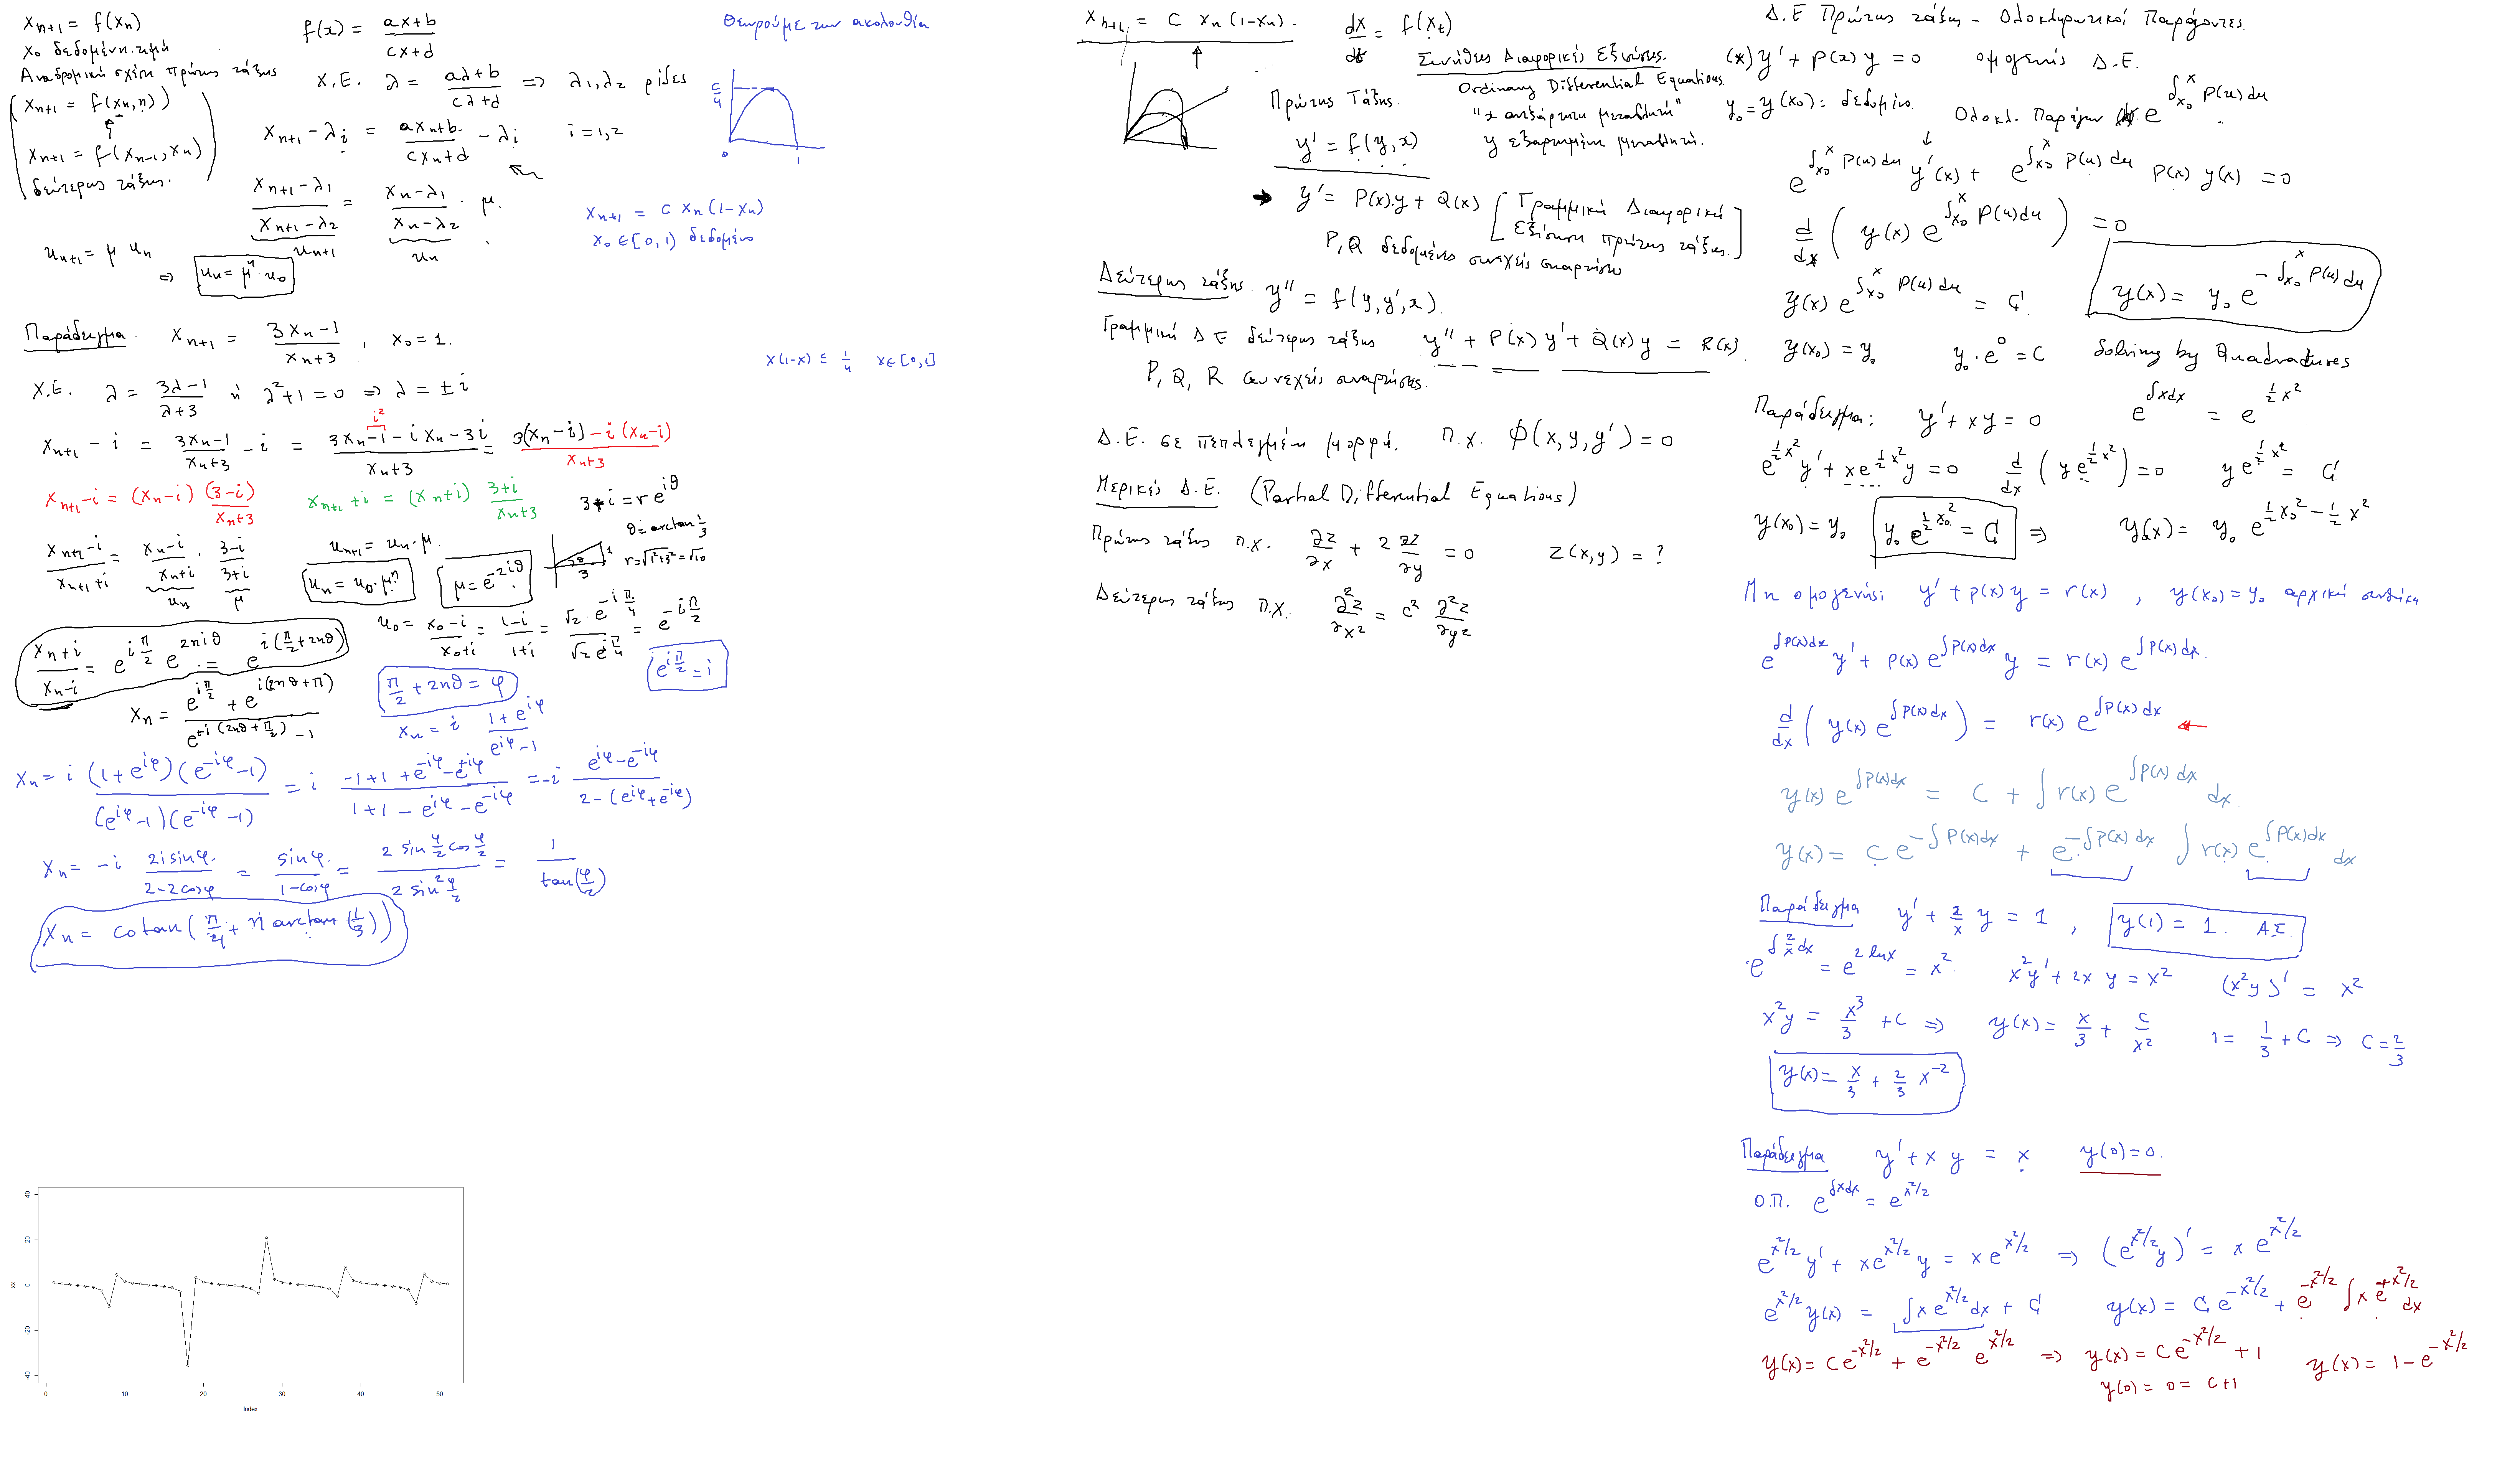 x_{n+1} = f(x_n)
x_0 δεδομένη τιμή
Αναδρομική σχέση πρώτης τάξης
( x_{n+1} = f(x_n, n) )
x_{n+1} = f(x_{n-1}, x_n)
δεύτερης τάξης.
f(x) = (ax+b)/(cx+d)
Χ.Ε. λ = (aλ+b)/(cλ+d) => λ_1, λ_2 ρίζες.
x_{n+1} - λ_i = (ax_n+b)/(cx_n+d) - λ_i i = 1,2
(x_{n+1} - λ_1)/(x_{n+1} - λ_2) = (x_n - λ_1)/(x_n - λ_2) · μ.
u_{n+1} u_n
u_{n+1} = μ u_n
=> u_n = μ^n · u_0
Θεωρούμε την ακολουθία
c/4
0 1
x_{n+1} = c x_n (1-x_n)
x_0 ∈ [0,1) δεδομένο
x(1-x) ≤ 1/4 x ∈ [0,1]
Παράδειγμα. x_{n+1} = (3x_n - 1)/(x_n + 3), x_0 = 1.
Χ.Ε. λ = (3λ-1)/(λ+3) ή λ^2+1 = 0 => λ = ± i
i^2
x_{n+1} - i = (3x_n-1)/(x_n+3) - i = (3x_n - 1 - i x_n - 3i)/(x_n+3) = (3(x_n - i) - i(x_n - i))/(x_n+3)
x_{n+1} - i = (x_n - i) (3-i)/(x_n+3)
x_{n+1} + i = (x_n + i) (3+i)/(x_n+3)
3+i = r e^{iθ}
θ = arctan 1/3
r = √(1^2+3^2) = √10
θ 3 1
(x_{n+1} - i)/(x_{n+1} + i) = (x_n - i)/(x_n + i) · (3-i)/(3+i)
u_n μ
u_{n+1} = u_n · μ.
u_n = u_0 · μ^n
μ = e^{-2iθ}
u_0 = (x_0 - i)/(x_0 + i) = (1-i)/(1+i) = (√2 · e^{-iπ/4})/(√2 e^{iπ/4}) = e^{-iπ/2}
(x_n + i)/(x_n - i) = e^{iπ/2} e^{2niθ} = e^{i(π/2+2nθ)}
e^{iπ/2} = i
x_n = (e^{iπ/2} + e^{i(2nθ+π)})/(e^{+i(2nθ+π/2)} - 1)
π/2 + 2nθ = φ
x_n = i (1+e^{iφ})/(e^{iφ} - 1)
x_n = i ((1+e^{iφ})(e^{-iφ} - 1))/((e^{iφ} - 1)(e^{-iφ} - 1)) = i (-1+1+e^{-iφ} - e^{+iφ})/(1+1 - e^{iφ} - e^{-iφ}) = -i (e^{iφ} - e^{-iφ})/(2-(e^{iφ}+e^{-iφ}))
x_n = -i (2i sinφ)/(2-2cosφ) = sinφ/(1-cosφ) = (2 sin φ/2 cos φ/2)/(2 sin^2 φ/2) = 1/tan(φ/2)
x_n = cotan(π/4 + n arctan(1/3))
xx
40
20
0
-20
-40
0 10 20 30 40 50
Index
x_{n+1} = c x_n (1-x_n).
dx/dt = f(x_t)
Συνήθεις Διαφορικές Εξισώσεις.
Ordinary Differential Equations
Πρώτης Τάξης. "x ανεξάρτητη μεταβλητή"
y' = f(y, x) y εξαρτημένη μεταβλητή.
y' = P(x)·y + Q(x) [Γραμμική Διαφορική Εξίσωση πρώτης τάξης.]
P, Q δεδομένες συνεχείς συναρτήσεις
Δεύτερης τάξης. y'' = f(y, y', x).
Γραμμική Δ Ε δεύτερης τάξης y'' + P(x) y' + Q(x) y = R(x)
P, Q, R συνεχείς συναρτήσεις.
Δ.Ε. σε πεπλεγμένη μορφή. π.χ. φ(x, y, y') = 0
Μερικές Δ.Ε. (Partial Differential Equations)
Πρώτης τάξης π.χ. ∂z/∂x + 2 ∂z/∂y = 0 z(x,y) = ?
Δεύτερης τάξης π.χ. ∂^2z/∂x^2 = c^2 ∂^2z/∂y^2
Δ.Ε Πρώτης τάξης - Ολοκληρωτικοί Παράγοντες.
(*) y' + P(x) y = 0 ομογενής Δ.Ε.
y_0 = y(x_0) : δεδομένο. Ολοκλ. Παράγων e^{∫_{x_0}^x P(u) du}
e^{∫_{x_0}^x P(u) du} y'(x) + e^{∫_{x_0}^x P(u) du} P(x) y(x) = 0
d/dx ( y(x) e^{∫_{x_0}^x P(u) du} ) = 0
y(x) e^{∫_{x_0}^x P(u) du} = C
y(x) = y_0 e^{-∫_{x_0}^x P(u) du}
y(x_0) = y_0 y_0 · e^0 = C Solving by Quadratures
Παράδειγμα: y' + xy = 0 e^{∫xdx} = e^{1/2 x^2}
e^{1/2 x^2} y' + x e^{1/2 x^2} y = 0 d/dx (y e^{1/2 x^2}) = 0 y e^{1/2 x^2} = C
y(x_0) = y_0 y_0 e^{1/2 x_0^2} = C => y(x) = y_0 e^{1/2 x_0^2 - 1/2 x^2}
Μη ομογενής: y' + p(x) y = r(x), y(x_0) = y_0 αρχική συνθήκη
e^{∫P(x)dx} y' + P(x) e^{∫P(x)dx} y = r(x) e^{∫P(x)dx}
d/dx ( y(x) e^{∫P(x)dx} ) = r(x) e^{∫P(x)dx}
y(x) e^{∫P(x)dx} = C + ∫ r(x) e^{∫P(x)dx} dx.
y(x) = C e^{-∫P(x)dx} + e^{-∫P(x)dx} ∫ r(x) e^{∫P(x)dx} dx
Παράδειγμα y' + 2/x y = 1, y(1) = 1. Α.Σ.
e^{∫2/x dx} = e^{2 lnx} = x^2 x^2 y' + 2x y = x^2 (x^2 y)' = x^2
x^2 y = x^3/3 + C => y(x) = x/3 + C/x^2 1 = 1/3 + C => C = 2/3
y(x) = x/3 + 2/3 x^{-2}
Παράδειγμα y' + x y = x y(0) = 0.
Ο.Π. e^{∫xdx} = e^{x^2/2}
e^{x^2/2} y' + x e^{x^2/2} y = x e^{x^2/2} => (e^{x^2/2} y)' = x e^{x^2/2}
e^{x^2/2} y(x) = ∫ x e^{x^2/2} dx + C y(x) = C e^{-x^2/2} + e^{-x^2/2} ∫ x e^{+x^2/2} dx
y(x) = C e^{-x^2/2} + e^{-x^2/2} e^{x^2/2} => y(x) = C e^{-x^2/2} + 1 y(x) = 1 - e^{-x^2/2}
y(0) = 0 = C+1